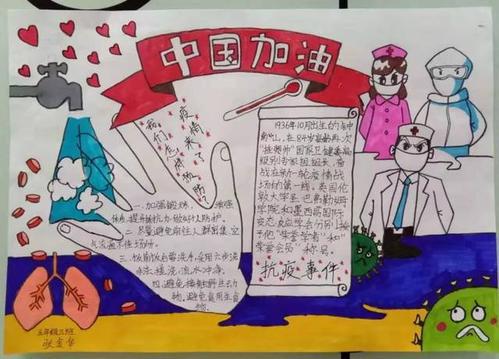 中国加油
疫情来了
我们怎样
一.加强锻炼, 增强
体质.提高抵抗力.做好个人防护.
二.尽量避免前往人群密集.空
气流通不佳场所.
三.饭前饭后需洗手.应用六步洗
手法.搓洗.流水冲净.
四.避免接触野生动
物.避免食用生食
物.
1936年10月出生的
南山,在84岁高龄再次
"挂帅"国家卫健委高
级别专家组组长,奋
战在新一轮疫情战
场的第一线.英国伦
敦大学 巴弗勒
学院和墨西哥国际
学会分别
予他"荣誉学者"和"
荣誉会员"称号.
抗疫事件
五年级三班